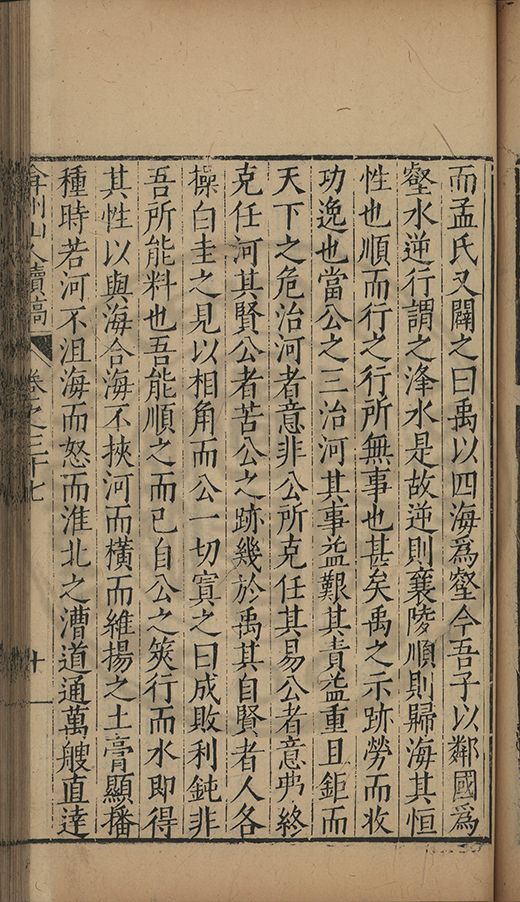 而孟氏又闢之曰禹以四海爲壑今吾子以鄰國爲
壑水逆行謂之洚水是故逆則襄陵順則歸海其恒
性也順而行之行所無事也甚矣禹之示跡勞而收
功逸也當公之三治河其事益艱其責益重且鉅而
天下之危治河者意非公所克任其易公者意弗終
克任河其賢公者苦公之跡幾於禹其自賢者人各
操白圭之見以相角而公一切寘之曰成敗利鈍非
吾所能料也吾能順之而已自公之筴行而水即得
其性以與海合海不挾河而橫而維揚之土膏顯播
種時若河不沮海而怒而淮北之漕道通萬艘直達
弇州山人續稿 卷之三十七 十